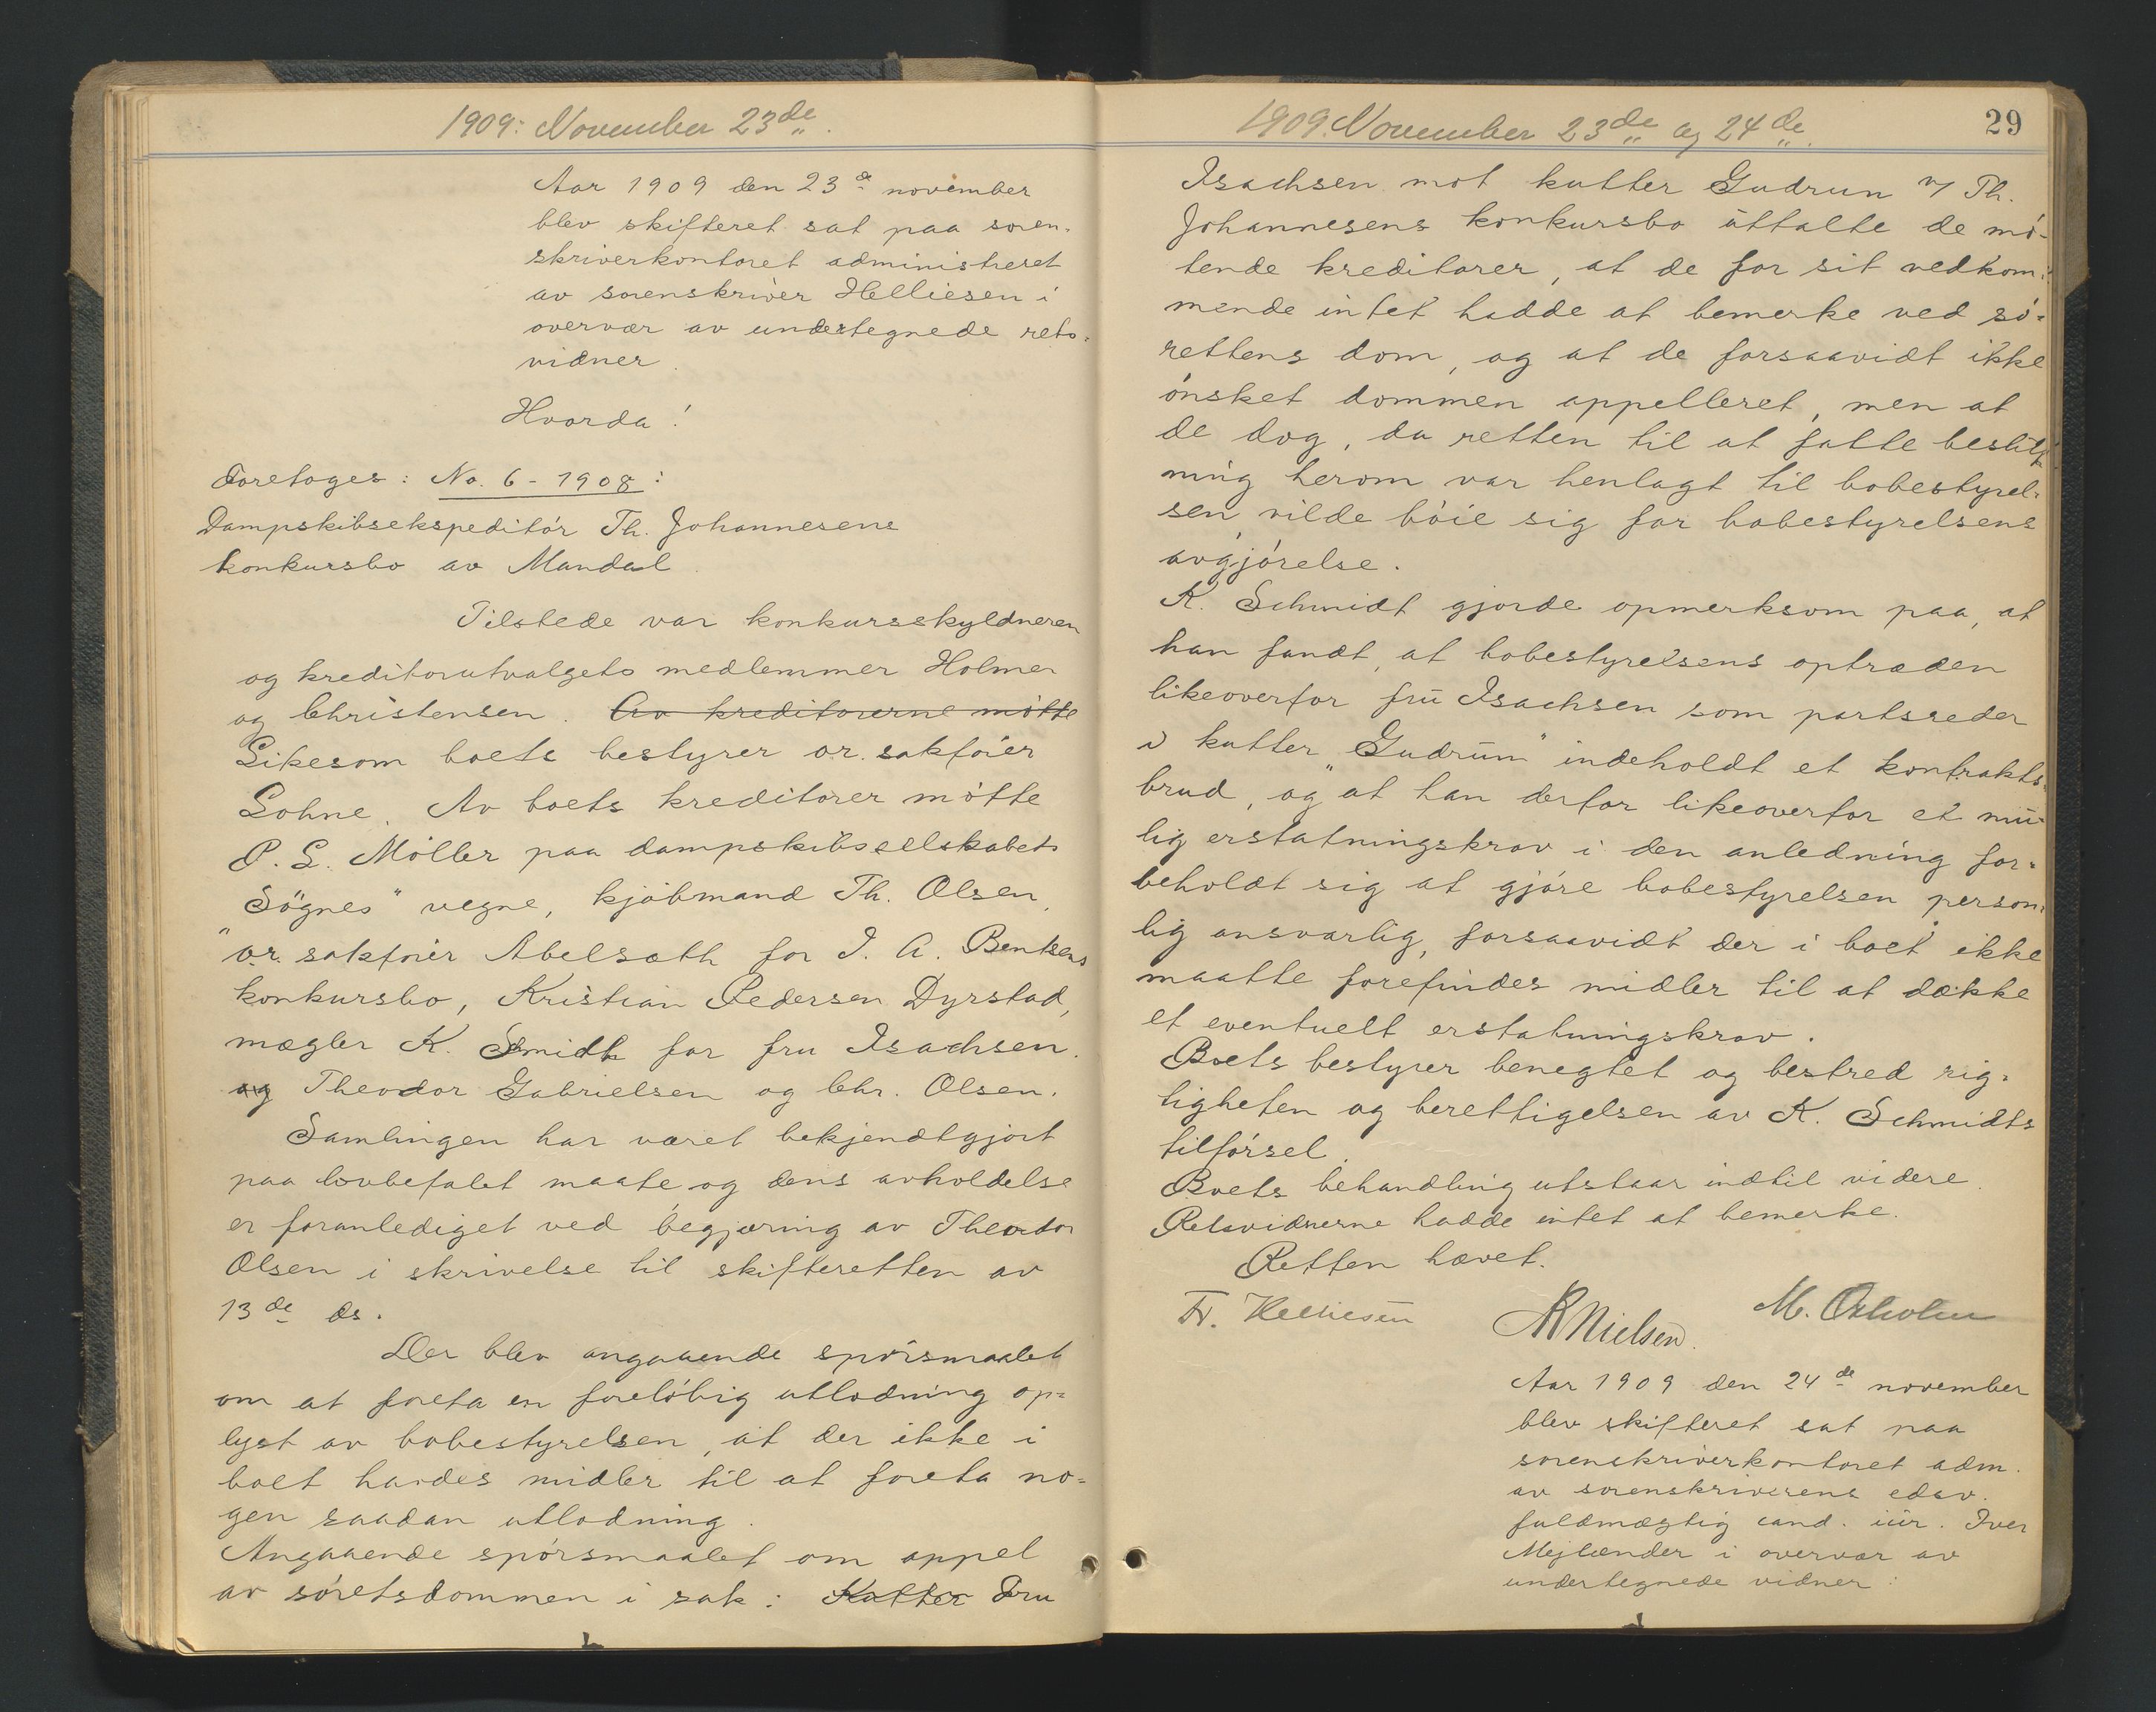 1909: November 23de.
Aar 1909 den 23de november
blev skifteret sat paa soren-
skriverkontoret administreret
av sorenskriver Helliesen i
overvær av undertegnede rets-
vidner.
Hvorda!
Foretoges: No. 6 - 1908:
Dampskibsekspeditór Th. Johannesens
konkursbo av Mandal.
Tilstede var konkursskyldneren
og kreditorutvalgets medlemmer Holmer
og Christensen. Av kreditorerne mótte
Likesom boets bestyrer or. sakfórer
Lohne. Av boets kreditorer mótte
P. L. Möller paa dampskibsselskabets
"Sögnes" vegne, kjóbmand Th. Olsen,
or. sakfórer Abelsæth for J. A. Bentsens
konkursbo, Kristian Pedersen Dyrstad,
mægler K. Smidt for fru Isachsen.
og Theodor Gabrielsen og Chr. Olsen.
Samlingen har været bekjendtgjort
paa lovbefalet maate og dens avholdelse
er foranlediget ved begjæring av Theodor
Olsen i skrivelse til skifteretten av
13de ds.
Der blev angaaende spórsmaalet
om at foreta en forelóbig utlodning op-
lyst av bobestyrelsen, at der ikke i
boet havdes midler til at foreta no-
gen saadan utlodning.
Angaaende spórsmaalet om appel
av sóretsdommen i sak: Kutter Fru
1909. November 23de og 24de.
29
Isachsen mot kutter Gudrun v/ Th.
Johannesens konkursbo uttalte de mó-
tende kreditorer, at de for sit vedkom-
mende intet hadde at bemerke ved só-
rettens dom, og at de forsaavidt ikke
ónsket dommen appelleret, men at
de dog, da retten til at fatte beslut-
ning herom var henlagt til bobestyrel-
sen vilde bóie sig for bobestyrelsens
avgjórelse.
K. Schmidt gjorde opmerksom paa, at
han fandt, at bobestyrelsens optræden
likeoverfor fru Isachsen som partsreder
i kutter "Gudrun" indeholdt et kontrakts-
brud, og at han derfor likeoverfor et mu-
lig erstatningskrav i den anledning for-
beholdt sig at gjóre bobestyrelsen person-
lig ansvarlig, forsaavidt der i boet ikke
maatte forefindes midler til at dække
et eventuelt erstatningskrav.
Boets bestyrer benegtet og bestred rig-
tigheten og berettigelsen av K. Schmidts
tilfórsel.
Boets behandling utstaar indtil videre.
Retsvidnerne hadde intet at bemerke.
Retten hævet.
Fr. Helliesen
Nielsen.
M. Oxholm
Aar 1909 den 24de november
blev skifteret sat paa
sorenskriverkontoret adm.
av sorenskriverens edsv.
fuldmægtig cand. jur. Iver
Mejlænder i overvær av
undertegnede vidner: